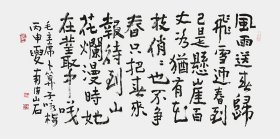 風雨送春歸
飛雪迎春到
已是懸崖百
丈冰猶有花
枝俏俏也不爭
春只把春來
報待到山
花爛漫時她
在叢中咲
毛主席卜算子咏梅
丙申夏
山石